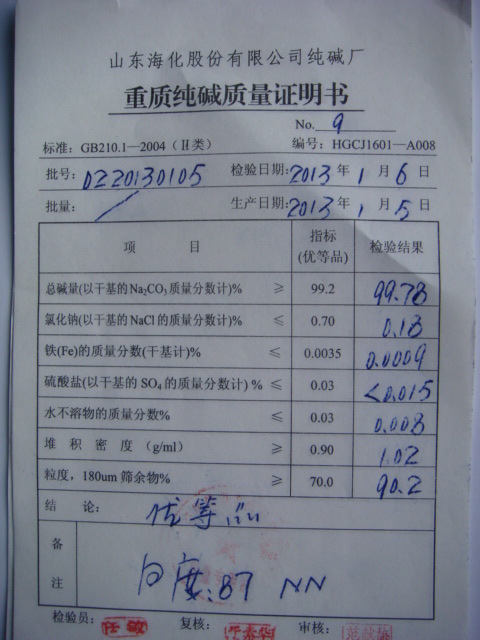 山东海化股份有限公司纯碱厂
重质纯碱质量证明书
No. 9
标准：GB210.1—2004（Ⅱ类） 编号：HGCJ1601—A008
批号：DZ20130105 检验日期：2013年1月6日
批量： 生产日期：2013年1月5日
项 目 指标(优等品) 检验结果
总碱量(以干基的Na₂CO₃质量分数计)% ≥ 99.2 99.78
氯化钠(以干基的NaCl的质量分数计)% ≤ 0.70 0.18
铁(Fe)的质量分数(干基计)% ≤ 0.0035 0.0009
硫酸盐(以干基的SO₄的质量分数计) % ≤ 0.03 <0.015
水不溶物的质量分数% ≤ 0.03 0.008
堆 积 密 度 （g/ml） ≥ 0.90 1.02
粒度，180um 筛余物% ≥ 70.0 90.2
结 论： 优等品
备注 白度：87 NN
检验员：任敏 复核： 审核：